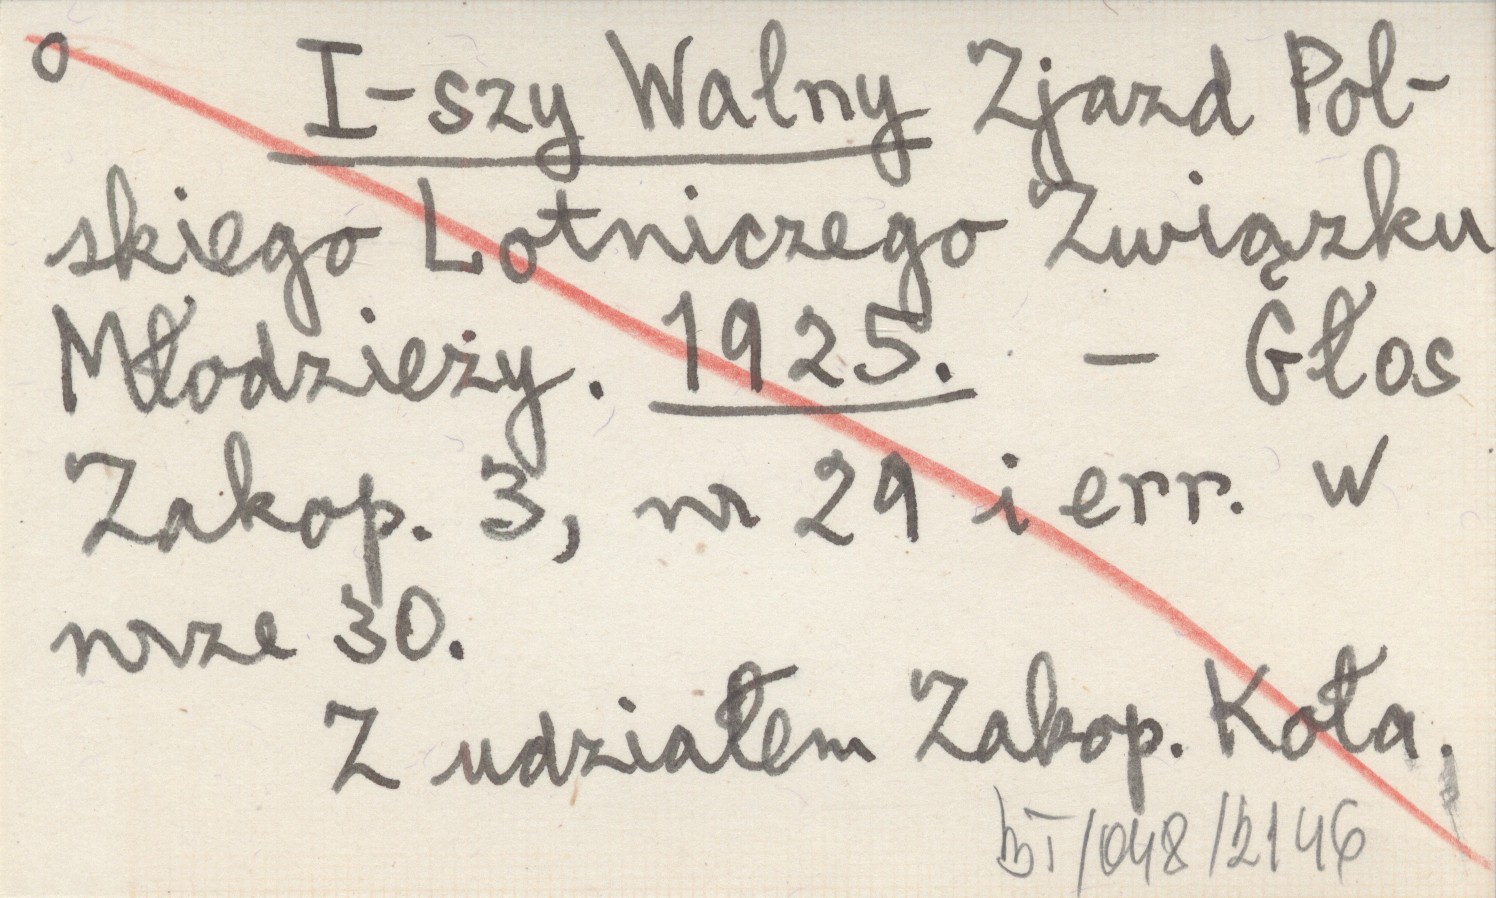 o I-szy Walny Zjazd Pol-
skiego Lotniczego Związku
Młodzieży. 1925. — Głos
Zakop. 3, nr 29 i err. w
nrze 30.
Z udziałem Zakop. Koła.
BT/048/2146